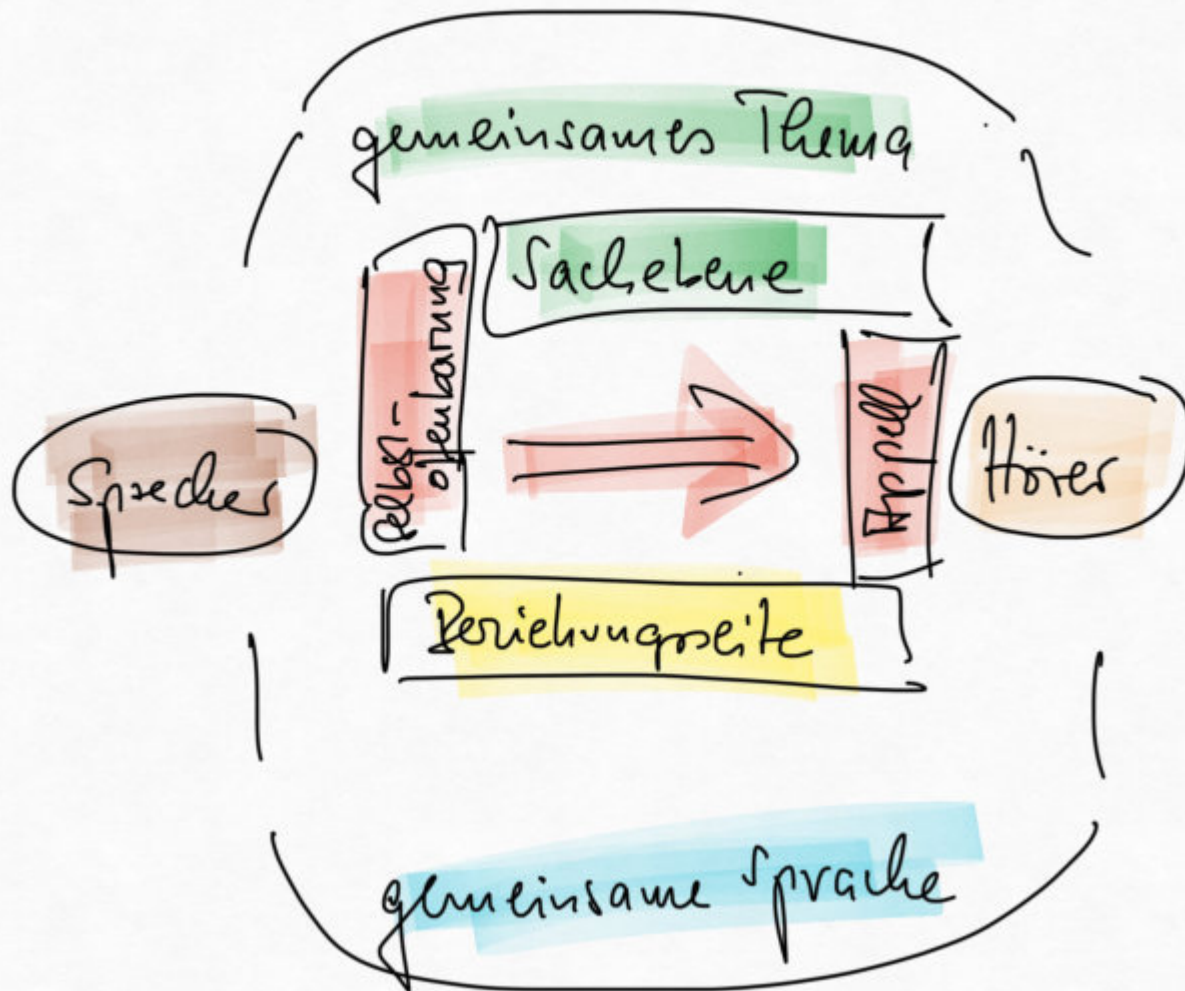 gemeinsames Thema
Sachebene
Selbst-
offenbarung
Sprecher
Appell
Hörer
Beziehungsseite
gemeinsame Sprache